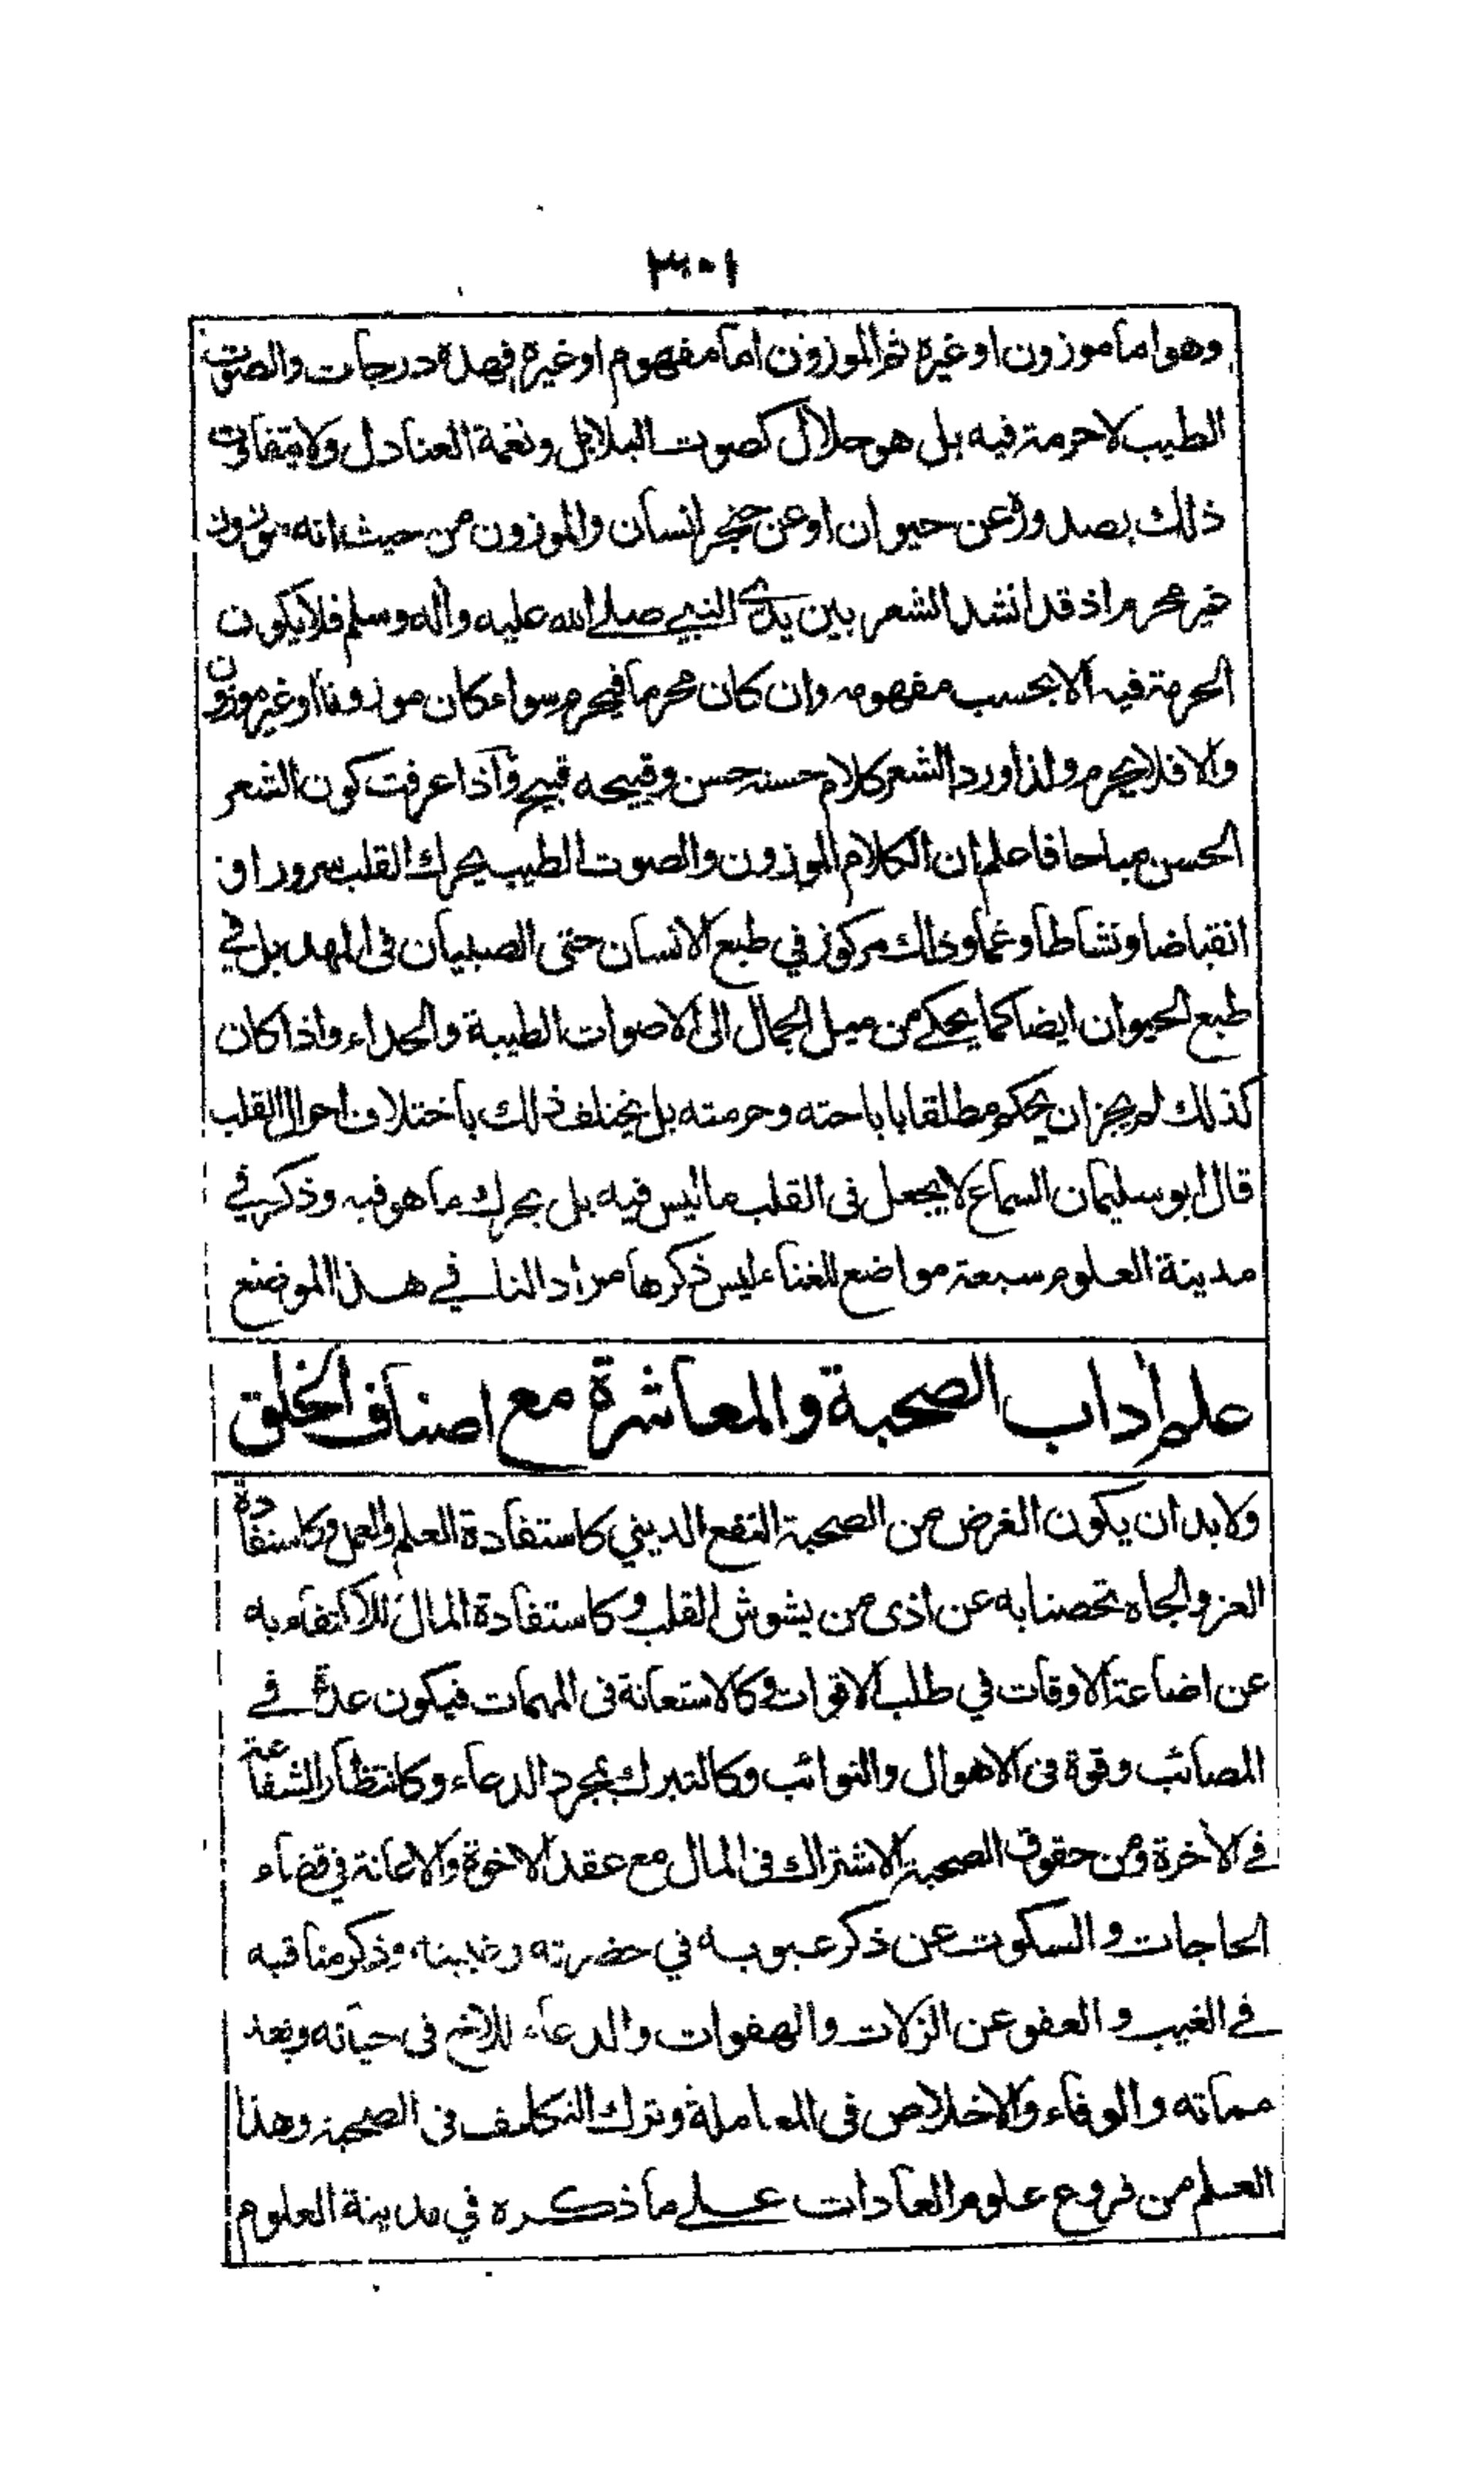 ٣٠١
وهو اما موزون او غيره ثم الموزون اما مفهوم او غيره فهذه درجات والصوت
الطيب لا حرمة فيه بل هو حلال كصوت البلابل ونغمة العنادل ولا يتفاوت
ذلك بصدوره عن حيوان او عن حنجر انسان والموزون من حيث انه موزون
غير محرم اذ قد انشد الشعر بين يدي النبي صلے الله عليه وأله وسلم فلا يكون
الحرمة فيه الا بحسب مفهومه وان كان محرما فيحرم سواء كان موزونا او غير موزون
والا فلا يحرم ولذا ورد الشعر كلام حسنه حسن وقبيحه قبيح واذا عرفت كون الشعر
الحسن مباحا فاعلم ان الكلام الموزون والصوت الطيب يحرك القلب سرورا و
انقباضا ونشاطا وغما وذلك مركوز في طبع الانسان حتى الصبيان في المهد بل في
طبع الحيوان ايضا كما يحكى من ميل الجمال الى الاصوات الطيبة والحداء واذا كان
كذلك لم يجز ان يحكم مطلقا باباحته وحرمته بل يختلف ذلك باختلاف احوال القلب
قال ابو سليمان السماع لا يجعل في القلب ما ليس فيه بل يحرك ما هو فيه وذكر في
مدينة العلوم سبعة مواضع للغناء ليس ذكرها مرادا لنا في هذا الموضع
علم أداب الصحبة والمعاشرة مع اصناف الخلق
ولا بد ان يكون الغرض من الصحبة النفع الديني كاستفادة العلم والعمل وكاستفادة
العز والجاه تحصنا به عن اذى من يشوش القلب وكاستفادة المال للاكتفاء به
عن اضاعة الاوقات في طلب الاقوات وكالاستعانة في المهمات فيكون عدة في
المصائب وقوة في الاهوال والنوائب وكالتبرك بمجرد الدعاء وكانتظار الشفاعة
في الأخرة ومن حقوق الصحبة الاشتراك في المال مع عقد الاخوة والاعانة في قضاء
الحاجات والسكوت عن ذكر عيوبه في حضرته وغيبته وذكر مناقبه
في الغيب والعفو عن الزلات والهفوات والدعاء للاخ في حياته وبعد
مماته والوفاء والاخلاص في المعاملة وترك التكليف في الصحبة وهذا
العلم من فروع علوم العادات علے ما ذكره في مدينة العلوم